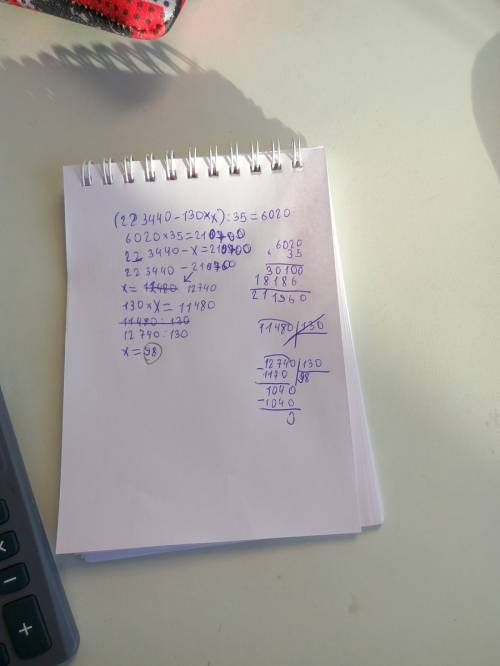 (223440-130×x):35=6020
6020×35=210700
223440-x=210700
223440-210700
x= 11480 12740
130×x=11480
11480:130
12740:130
x=98
6020
× 35
30100
18186
211960
11480 130
12740 130
-1170 98
1040
-1040
0